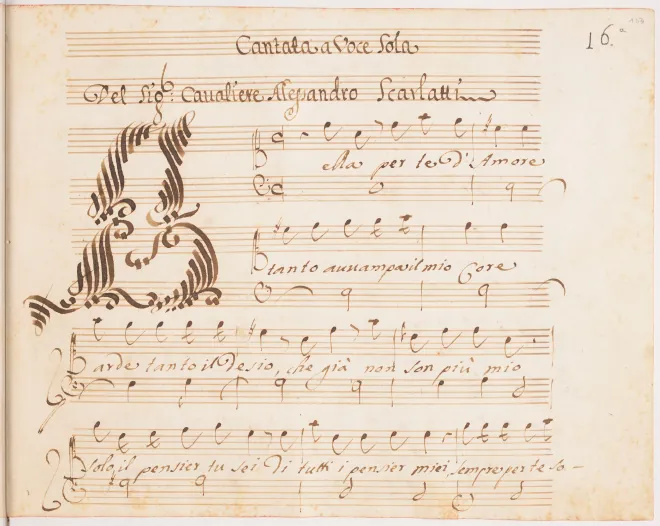 Cantata a Voce Sola
16.a
Del Sigr: Cavaliere Alessandro Scarlatti
B
ella per te d'Amore
tanto avvampa il mio Core
arde tanto il desio, che già non son più mio
solo il pensier tu sei di tutti i pensier miei sempre per te so-